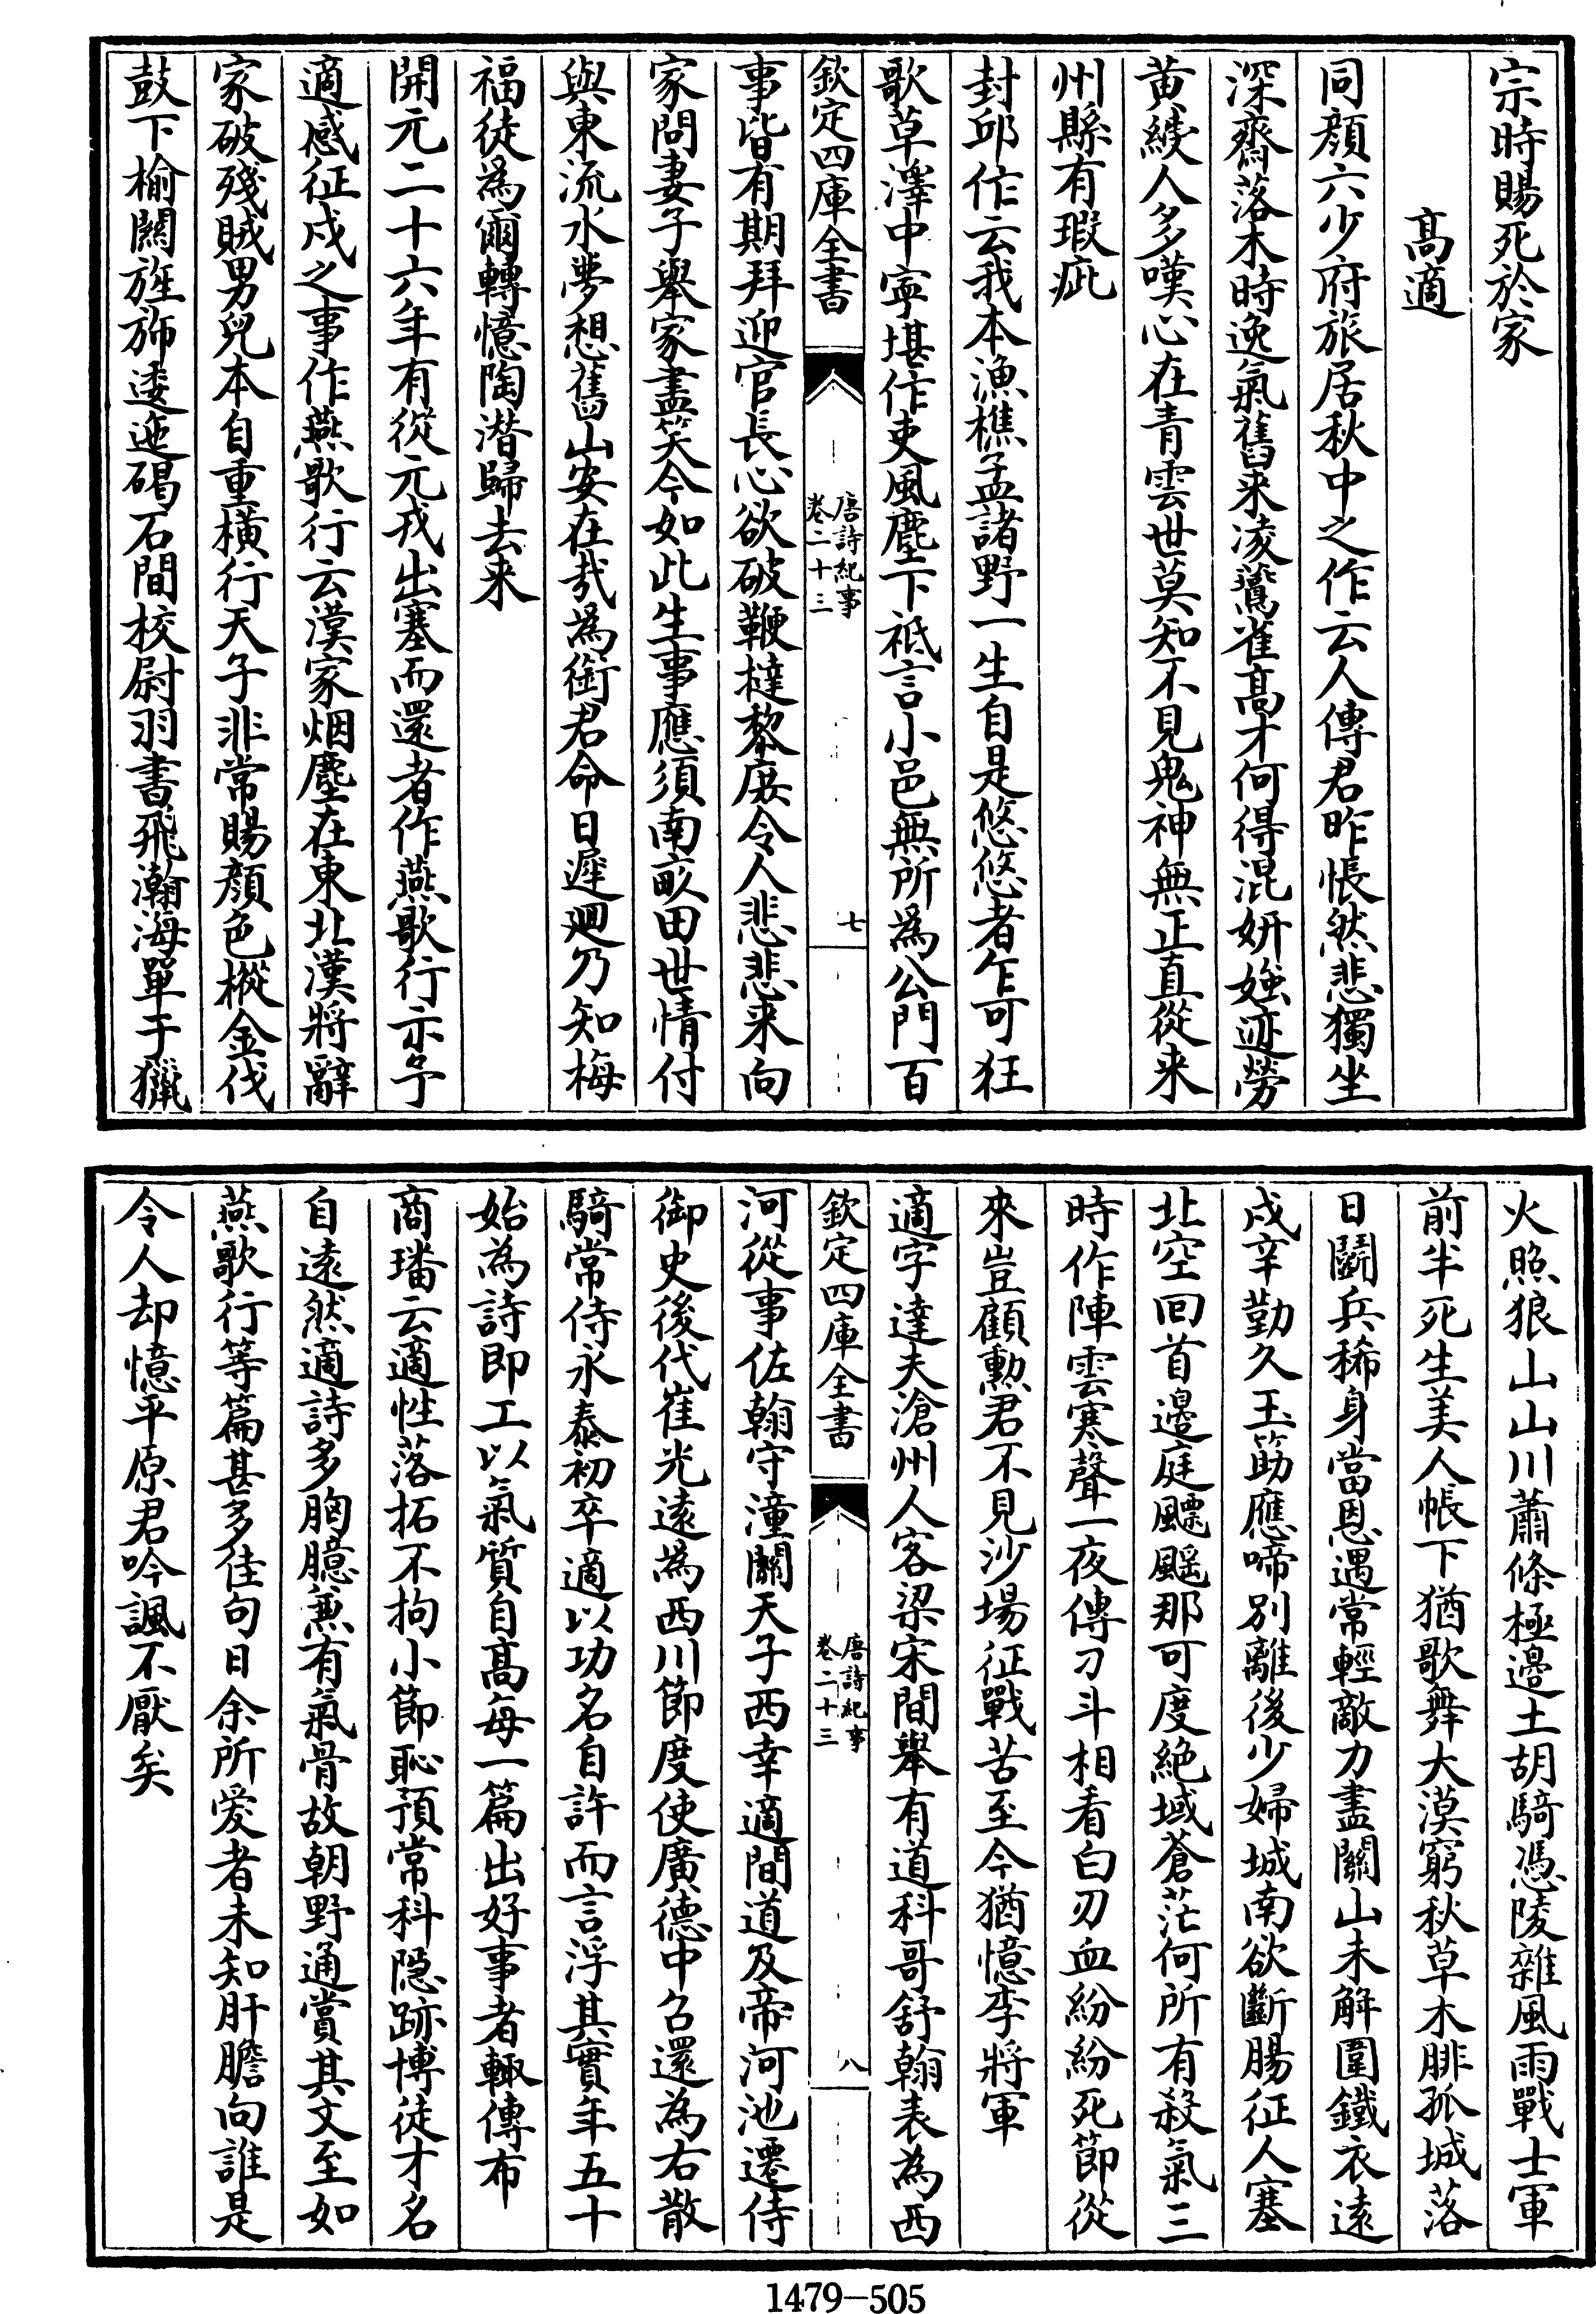 宗時賜死於家
高適
同顔六少府旅居秋中之作云人傳君昨悵然悲獨坐
深齋落木時逸氣舊来凌鷰雀高才何得混妍媸迹勞
黄綬人多嘆心在青雲世莫知不見鬼神無正直從来
州縣有瑕疵
封邱作云我本漁樵孟諸野一生自是悠悠者乍可狂
歌草澤中寧堪作吏風塵下祗言小邑無所為公門百
欽定四庫全書
唐詩紀事
卷二十三
七
事皆有期拜迎官長心欲破鞭撻黎庻令人悲悲来向
家問妻子舉家盡笑今如此生事應須南畝田世情付
與東流水夢想舊山安在哉為銜君命日遲廻乃知梅
福徒為爾轉憶陶潜歸去来
開元二十六年有從元戎出塞而還者作燕歌行示予
適感征戍之事作燕歌行云漢家烟塵在東北漢將辭
家破殘賊男兒本自重横行天子非常賜顔色樅金伐
鼓下榆關旌斾逶迤碣石間校尉羽書飛瀚海單于獵
火照狼山山川蕭條極邊土胡騎憑陵雜風雨戰士軍
前半死生美人帳下猶歌舞大漠窮秋草木腓孤城落
日鬭兵稀身當恩遇常輕敵力盡關山未解圍鐵衣逺
戍辛勤久玉筯應啼别離後少婦城南欲斷腸征人塞
北空回首邊庭飃颻那可度絶域蒼茫何所有殺氣三
時作陣雲寒聲一夜傳刁斗相看白刃血紛紛死節從
來豈顧勲君不見沙場征戰苦至今猶憶李將軍
適字達夫滄州人客梁宋間舉有道科哥舒翰表為西
欽定四庫全書
唐詩紀事
卷二十三
八
河從事佐翰守潼關天子西幸適間道及帝河池遷侍
御史後代崔光逺為西川節度使廣德中召還為右散
騎常侍永泰初卒適以功名自許而言浮其實年五十
始為詩即工以氣質自高每一篇出好事者輙傳布
商璠云適性落拓不拘小節恥預常科隠跡博徒才名
自逺然適詩多胸臆兼有氣骨故朝野通賞其文至如
燕歌行等篇甚多佳句曰余所愛者未知肝膽向誰是
令人却憶平原君吟諷不厭矣
1479-505